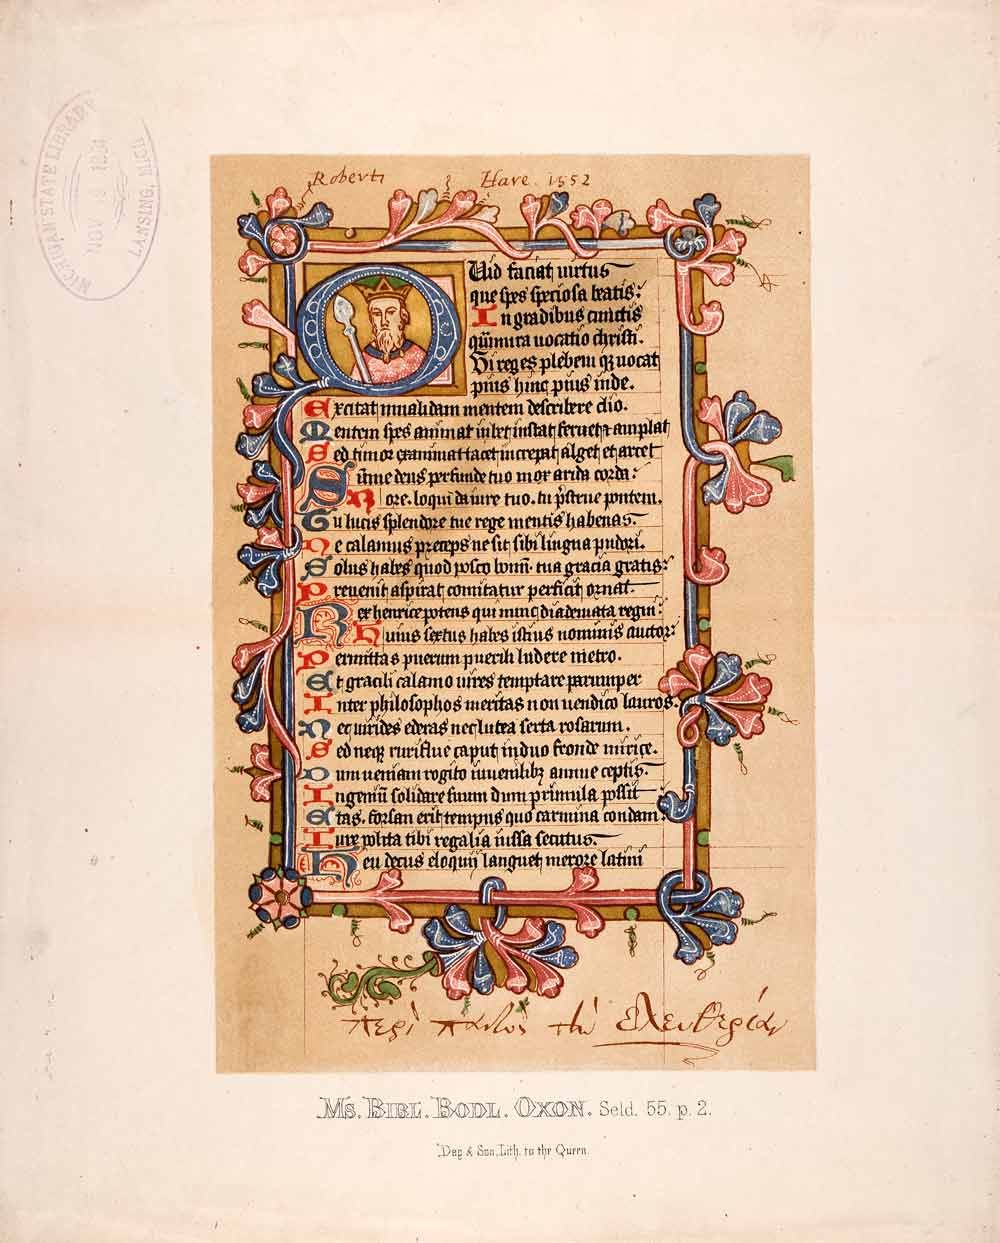 MICHIGAN STATE LIBRARY
NOV 19
LANSING, MICH
Robert Hare. 1552
Quid faciat uirtus
que spes speciosa beatis:
In gradibus cunctis
qm mira uocatio christi.
Hi reges plebem qz uocat
pius hinc pius inde.
Excitat inualidam mentem describere clio.
Mentem spes animat iubet instat feruet et ampliat
Sed timor exanimat tacet increpat alget et arcet
Sume deus perfunde tuo mox arida corda:
More. loqui da iure tuo. tu pstrue pontem.
Tu lucis splendore tue rege mentis habenas.
Ne calamus preceps ne sit sibi lingua pudori.
Solus habes quod posco bonu. tua gracia gratis:
Preuenit aspirat comitatur perficit ornat.
Rex henrice potens qui nunc diademata regni:
Huius sextus habes istius nominis auctor:
Permittas puerum puerili ludere metro.
Et gracili calamo uires temptare parumper
Inter philosophos meritas non uendico lauros.
Nec uirides ederas nec lutea serta rosarum.
Sed neqz rurisue caput induo fronde mirice.
Dum ueniam rogito iuuenilibz annue ceptis.
Ingeniu solidare suum dum primula possit
Etas. forsan erit tempus quo carmina condam:
Iure polita tibi regalia iussa secutus.
Heu decus eloquij languet merore latini
περὶ παντὸς τὴν ἐλευθερίαν
Ms. Bibl. Bodl. Oxon. Seld. 55. p. 2.
Day & Son, Lith. to the Queen.